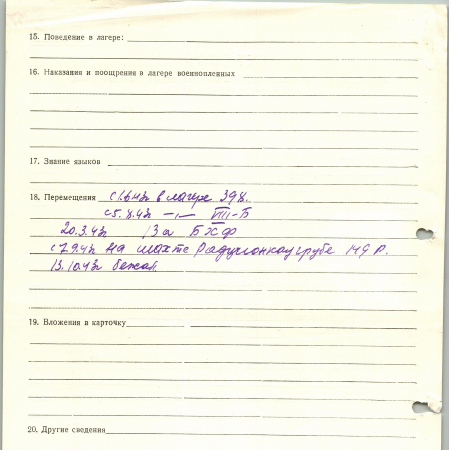 15. Поведение в лагере:
16. Наказания и поощрения в лагере военнопленных
17. Знание языков
18. Перемещения с 1.6.42 в лагере 398.
с 5.8.42 –„– VIII-Б
20.3.43 /За БХФ
с 7.9.43 на шахте Радционкаугрубе
13.10.43 бежал.
19. Вложения в карточку
20. Другие сведения